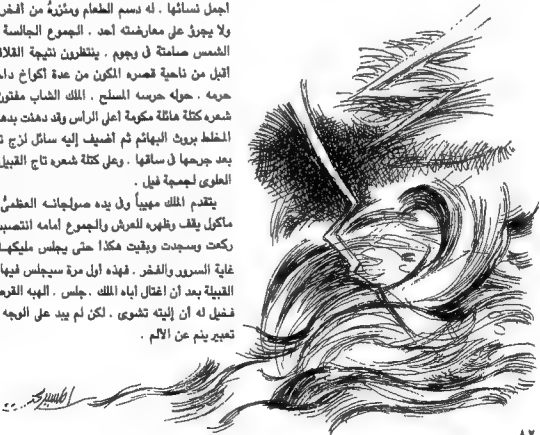 أجمل نسائها . له دسم الطعام ومئزره من أفخر
ولا يجرؤ على معارضته أحد . الجموع الجالسة
الشمس صامتة في وجوم . ينتظرون نتيجة القلا
أقبل من ناحية قصره المكون من عدة أكواخ داخ
حرمه . حوله حرسه المسلح . الملك الشاب مفتون
شعره كتلة هائلة مكومة أعلى الراس وقد دهنت بده
المخلط بروث البهائم ثم أضيف إليه سائل لزج
بعد جرحها في ساقها . وعلى كتلة شعره تاج القبيل
العلوى لجمجة فيل .
يتقدم الملك مهيباً وفي يده صولجانه العظمىُّ
مأكول يقف وظهره للعرش والجموع أمامه انتصب
ركعت وسجدت وبقيت هكذا حتى يجلس مليكها
غاية السرور والفخر . فهذه أول مرة سيجلس فيها
القبيلة بعد أن اغتال أباه الملك . جلس . ألهبه القر
فخيل له أن إليته تشوى . لكن لم يبد على الوجه
تعبير ينم عن الألم .
٨٢